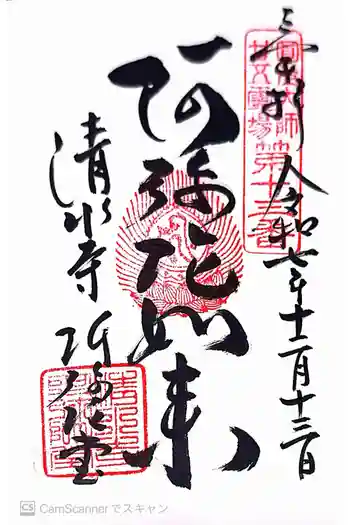 奉拝
圓光大師
廿五霊場
第十三番
令和七年十二月十三日
阿弥陀如来
清水寺 阿弥陀堂
CS CamScanner でスキャン